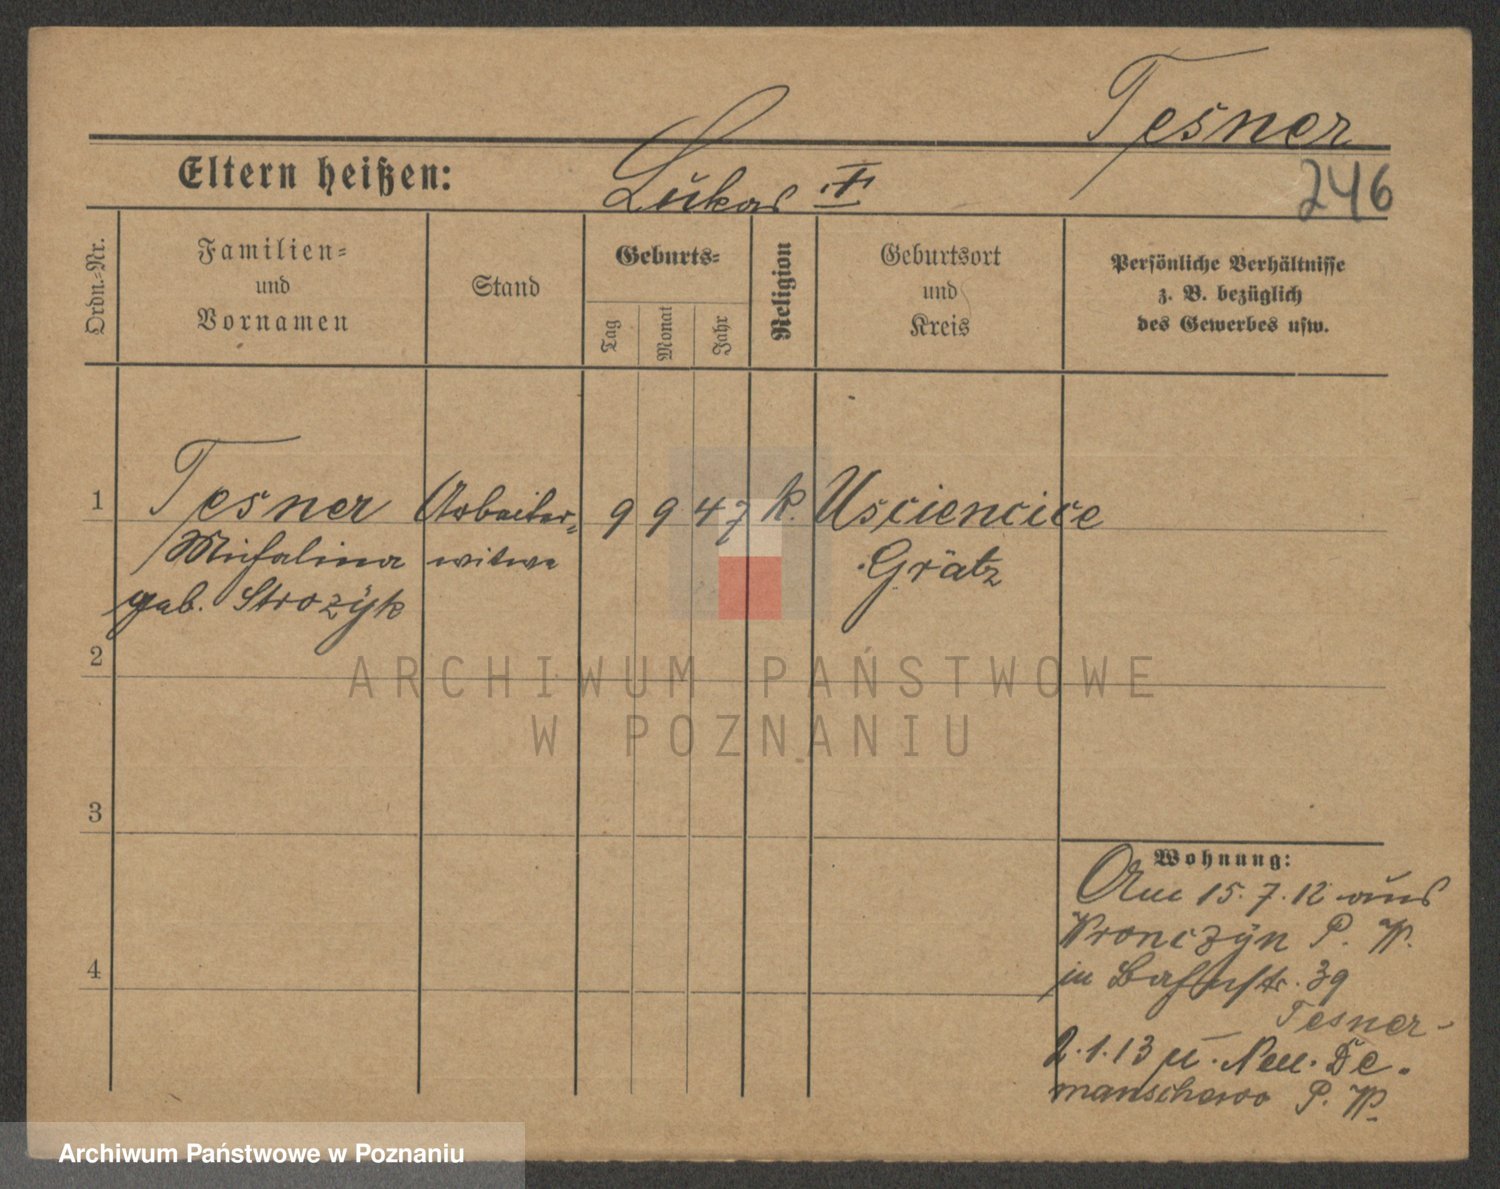 Tesner
Eltern heißen:
Lukas
246
Ordn.-Nr.
Familien=
und
Vornamen
Stand
Geburts=
Tag
Monat
Jahr
Religion
Geburtsort
und
Kreis
Persönliche Verhältnisse
z. B. bezüglich
des Gewerbes usw.
1
Tesner Arbeiter= 9 9 47 k. Usciencice
Michalina witwe Grätz
geb. Strozyk
2
ARCHIWUM PAŃSTWOWE
W POZNANIU
3
Wohnung:
Am 15.7.12 aus
Wronczyn P. W.
4
in Bahnstr. 39
Tesner
2.1.13 n. Neu-De-
manschewo P. W.
Archiwum Państwowe w Poznaniu